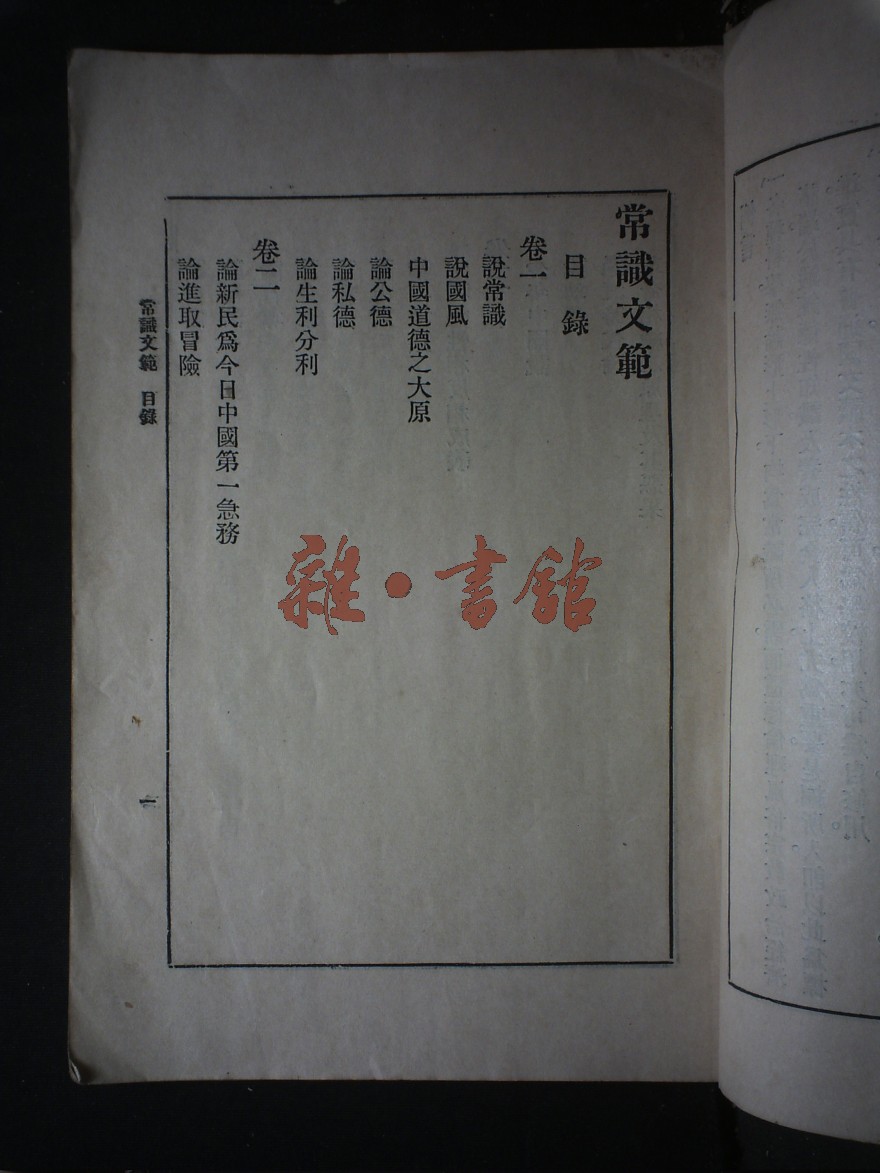 常識文範
目錄
卷一
說常識
說國風
中國道德之大原
論公德
論私德
論生利分利
卷二
論新民爲今日中國第一急務
論進取冒險
常識文範 目錄
一
雜·書館